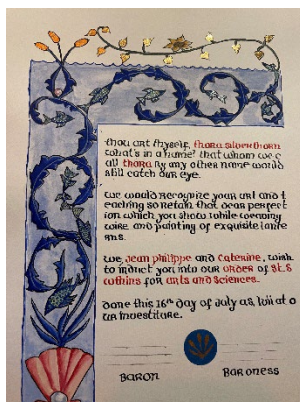 thou art thyself, thora silverthorn
what's in a name? that whom we c
all thora by any other name would
still catch our eye.
we would recognize your art and t
eaching so retain that dear perfect
ion which you show while weaving
wire and painting of exquisite lante
rns.
we, jean philippe and caterine, wish
to induct you into our order of st. s
withins for arts and sciences.
done this 16th day of july as lvii at o
ur investiture.
BARON
BARONESS